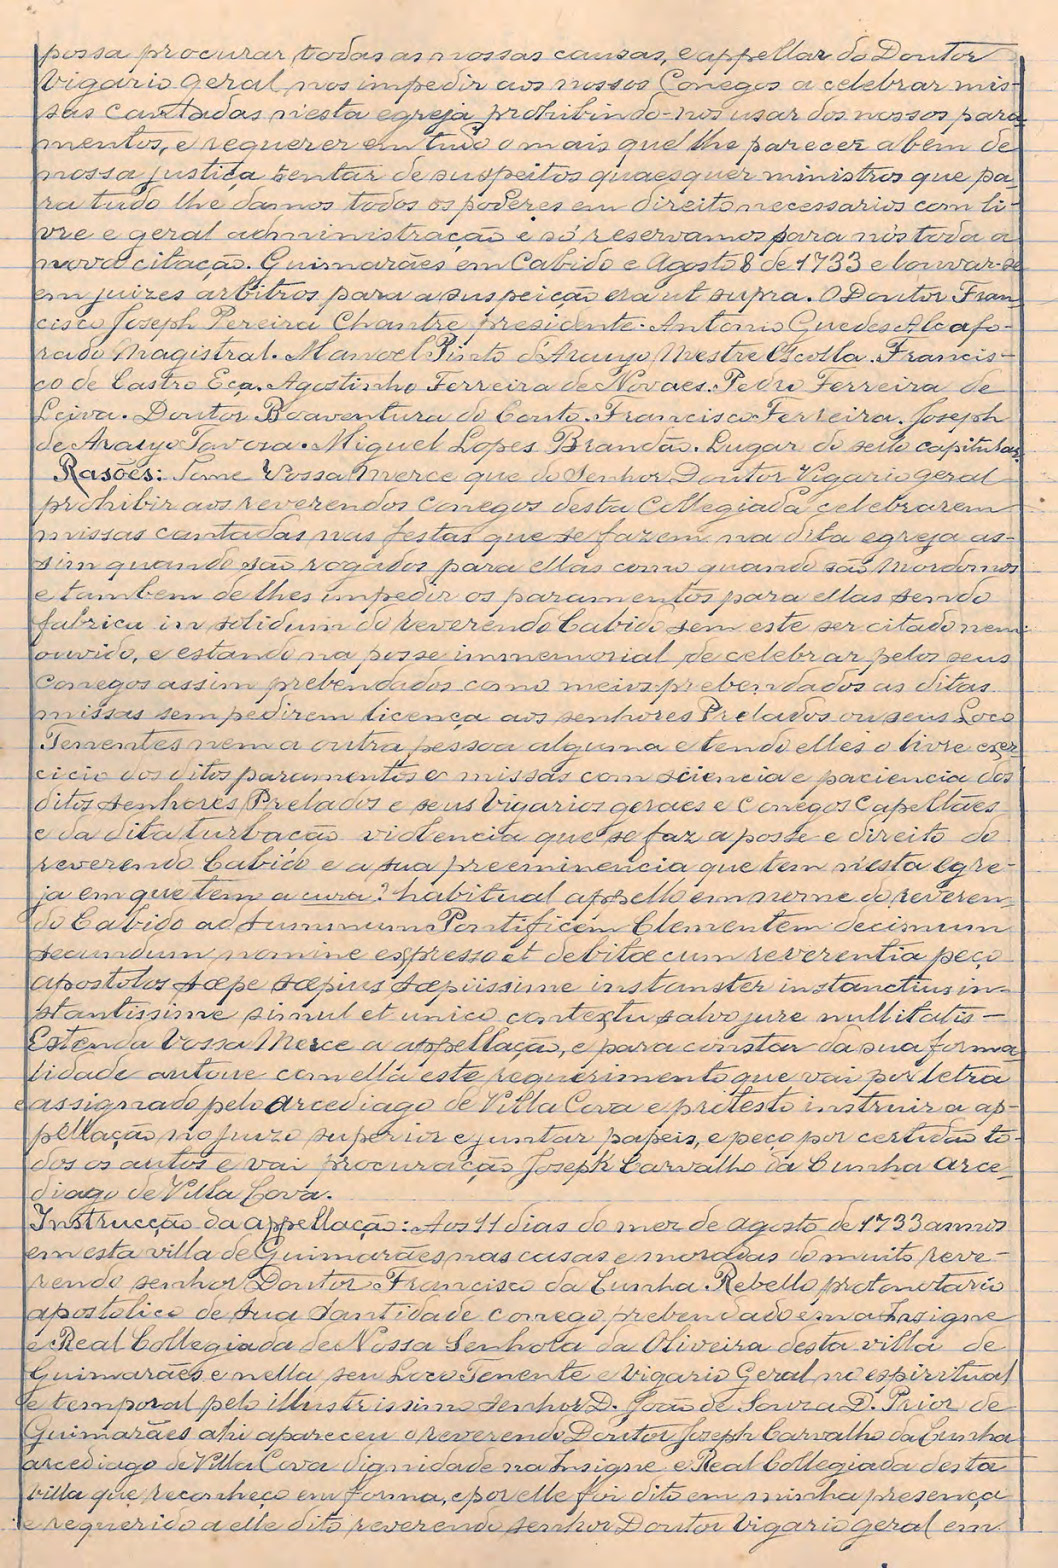 possa procurar todas as nossas causas, e appellar do Doutor
Vigario geral nos impedir aos nossos Conegos a celebrar mis-
sas cantadas n'esta egreja prohibindo-nos usar dos nossos para
mentos, e requerer em tudo o mais que lhe parecer a bem de
nossa justiça tentar de suspeitos quaesquer ministros que pa-
ra tudo lhe damos todos os poderes em direito necessarios com li-
vre e geral administração e só reservamos para nós toda a
nova citação. Guimarães em Cabido e Agosto 8 de 1733 e louvar-se
em juizes arbitros para a suspeição era ut supra. O Doutor Fran-
cisco Joseph Pereira Chantre presidente. Antonio Guedes Alcafo-
rado Magistral. Manoel Pinto d'Araujo Mestre Escolla. Francis-
co de Castro Eça. Agostinho Ferreira de Novaes. Pedro Ferreira de
Leiva. Doutor Boaventura do Couto. Francisco Ferreira. Joseph
de Araujo Tavora. Miguel Lopes Brandão. Lugar do sello capitular.
Rasões: Tome Vossa Merce que do Senhor Doutor Vigario geral
prohibir aos reverendos conegos desta Collegiada celebrarem
missas cantadas nas festas que se fazem na dita egreja as-
sim quando são rogados para ellas como quando são Mordomos
e tambem de lhes impedir os paramentos para ellas sendo
fabrica in solidum do reverendo Cabido sem este ser citado nem
ouvido, e estando na posse immemorial de celebrar pelos seus
conegos assim prebendados como meios prebendados as ditas
missas sem pedirem licença aos senhores Prelados ou seus Loco
Tenentes nem a outra pessoa alguma e tendo elles o livre exer
cicio dos ditos paramentos e missas com sciencia e paciencia dos
ditos senhores Prelados e seus Vigarios geraes e conegos Capellães
e da dita turbação violencia que se faz a posse e direito do
reverendo Cabido e a sua preeminencia que tem n'esta egre-
ja em que tem a cura? habitual appello em nome do reveren-
do Cabido ad summum Pontificem Clementem decimum
secundum nomine expresso et debitæ cum reverentia peço
apostolos sæpe sæpius sæpiissime instanster instanctius in-
stantissime simul et unico contextu salvo jure nullitatis -
Estenda Vossa Merce a appellação, e para constar da sua forma
lidade autoue com ella este requerimento que vai por letra
e assignado pelo arcediago de Villa Cova e protesto instruir a ap-
pellação no juizo superior e juntar papeis, e peço por certidão to-
dos os autos e vai procuração Joseph Carvalho da Cunha arce-
diago de Villa Cova.
Instrucção da appellação: Aos 11 dias do mez de agosto de 1733 annos
em esta villa de Guimarães nas casas e moradas do muito reve-
rendo senhor Doutor Francisco da Cunha Rebello protonotario
apostolico de sua Santidade conego prebendado em a Insigne
e Real Collegiada de Nossa Senhora da Oliveira desta villa de
Guimarães e nella seu Loco Tenente e Vigario Geral no espiritual
e temporal pelo illustrissimo Senhor D. João de Souza D. Prior de
Guimarães ahi apareceu o reverendo Doutor Joseph Carvalho da Cunha
arcediago de Villa Cova dignidade na Insigne e Real Collegiada desta
villa que reconheço em forma, e por elle foi dito em minha presença
e requerido a elle dito reverendo senhor Doutor Vigario geral em